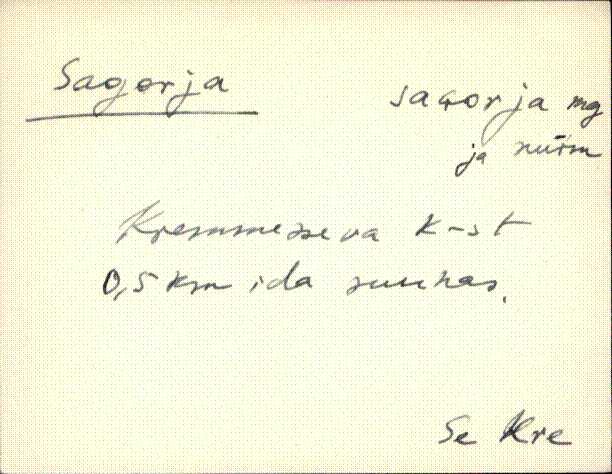 Sagorja
saGorja mg
ja nurm
Kremessova k-st
0,5 km ida suunas.
Se Kre